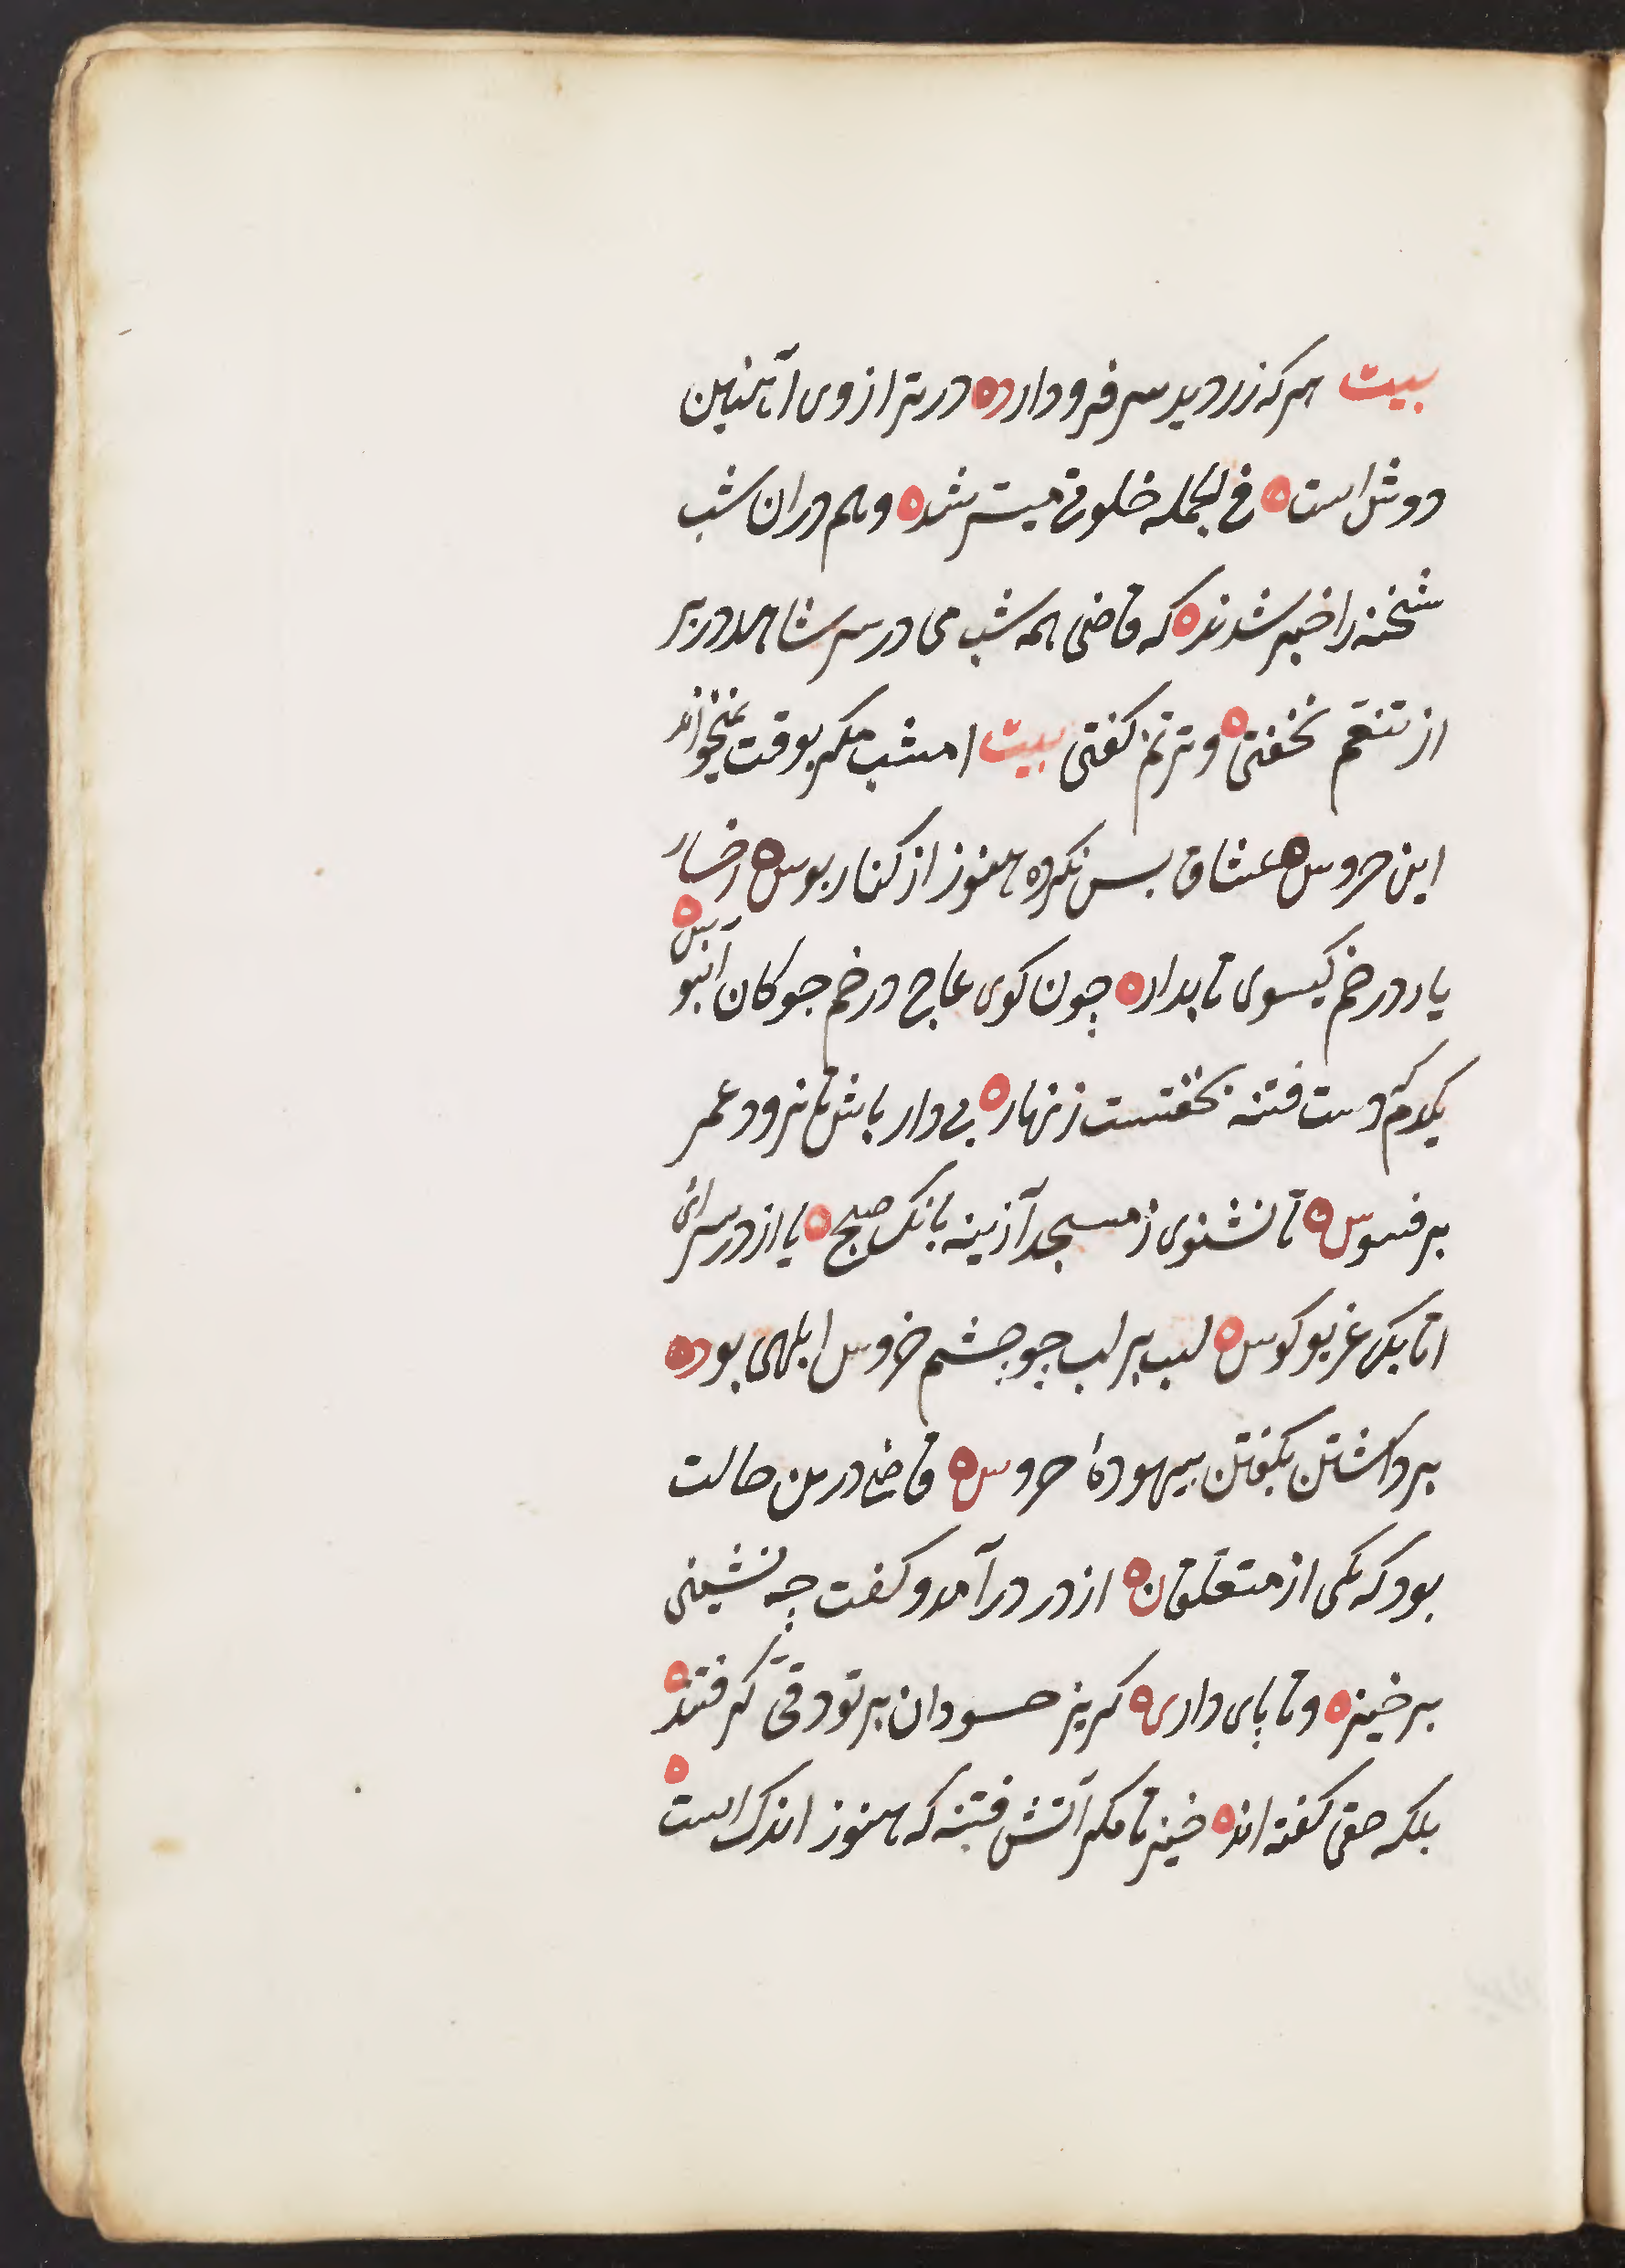 بیت هرکه زر دید سر فرو دارد ه در ترازوی آهنین
دوش است ه فی الجمله خلوتی میسر شد ه و هم دران شب
شحنه را خبر شدند ه که قاضی همه شب می در سر شاهد در بر
از تنعم نخفتی ه و ترنم کفتی بیت امشب مکر بوقت نمیخواند
این خروس ه عشاق بس نکرده هنوز از کنار بوس ه رخسار
یار در خم کیسوی تابدار ه چون کوی عاج در خم جوکان آبنوس ه
یکدم که دوست فتنه نخفتست زنهار ه بی دار باش تا نرود عمر
بر فسوس ه تا نشنوی ز مسجد آزینه بانک صبح ه یا از در سرای
اتابک غریو کوس ه لب بر لب چو چشم خروس ابلهی بود ه
برداشتن بکفتن بیهودهٔ خروس ه قاضی درین حالت
بود که یکی از متعلقان ه از در درآمد و کفت چه نشینی
برخیز ه و تا پای داری ه کریز حسودان بر تو دقی کرفتند ه
بلکه حقی کفته اند ه خیز تا مکر آتش فتنه که هنوز اندک است ه